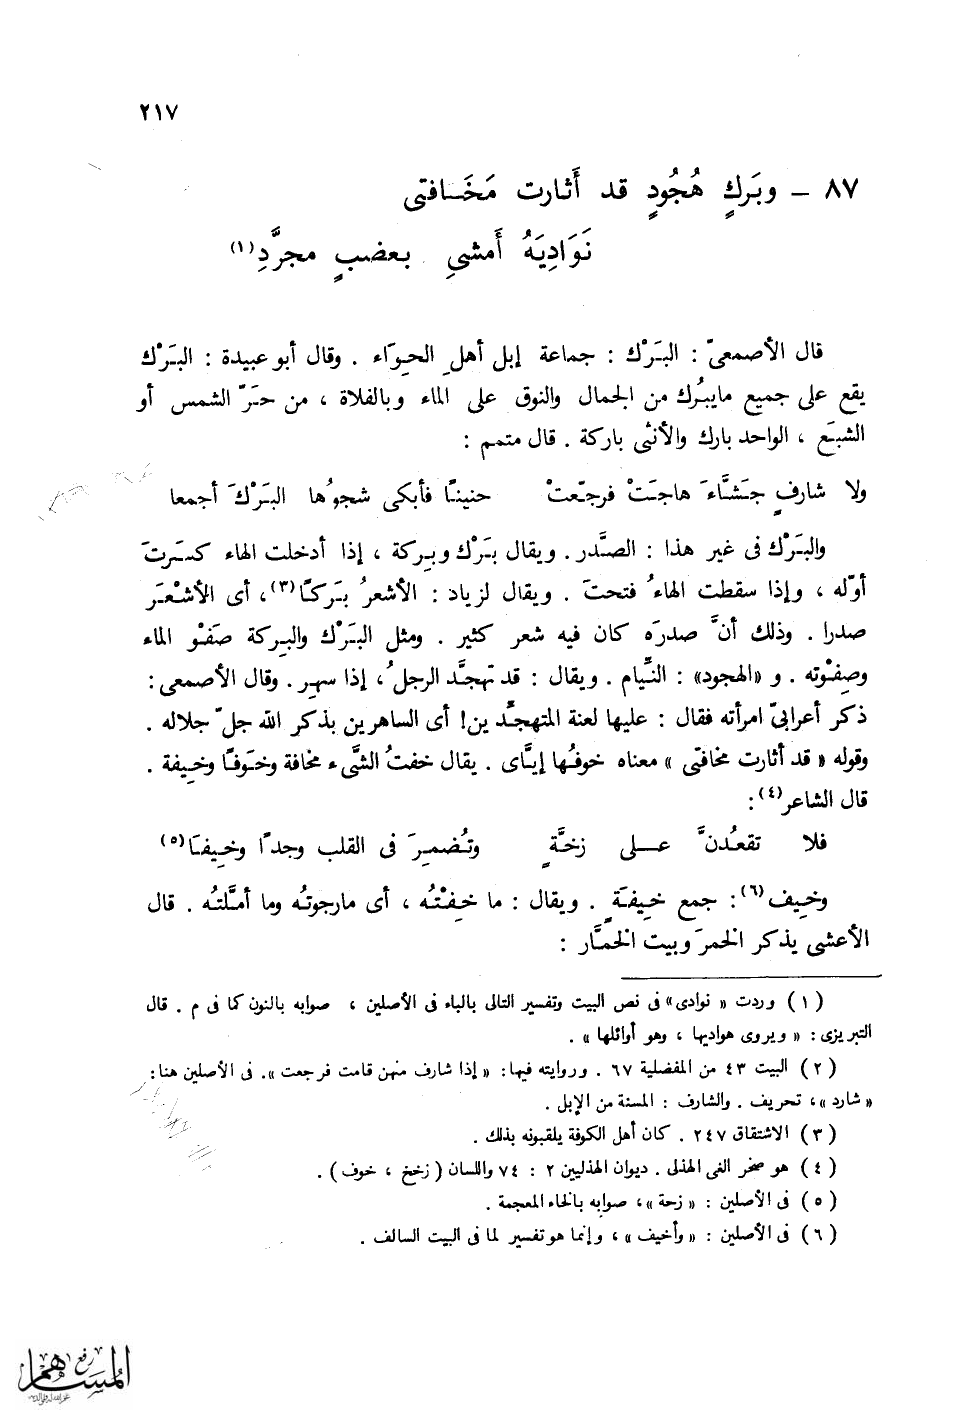 ٢١٧
٨٧ ــ وبَركٍ هُجُودٍ قد أَثارت مَخَافتى
نَوَادِيَهُ أَمشىِ بعضبٍ مجرَّدِ(١)
قال الأصمعىّ : البَرْك : جماعة إبل أهلِ الحِوَاء . وقال أبو عبيدة : البَرْك
يقع على جميع مايبرُك من الجمال والنوق على الماء وبالفلاة ، من حَرّ الشمس أو
الشبَع ، الواحد بارك والأنثى باركة . قال متمم :
ولا شارفٍ جَشَّاءَ هاجَتْ فرجّعتْ حنينًا فأبكى شجوُها البَرْكَ أجمعا
والبَرْك فى غير هذا : الصَّدر . ويقال بَرْك وبِركة ، إذا أدخلت الهاء كسَرتَ
أوّله ، وإذا سقطت الهاءُ فتحتَ . ويقال لزياد : الأشعرُ بَركًا(٣)، أى الأشْعَر
صدرا . وذلك أنَّ صدرَه كان فيه شعر كثير . ومثل البَرْك والبِركة صَفْو الماء
وصِفْوته . و «الهجود» : النِّيام . ويقال : قد تهجَّد الرجلُ ، إذا سهِر . وقال الأصمعى :
ذكر أعرابىّ امرأته فقال : عليها لعنة المتهجِّدين! أى الساهرين بذكر الله جلّ جلاله .
وقوله « قد أثارت مخافتى » معناه خوفُها إيَّاى . يقال خفتُ الشَّىء مخافة وخَوفًا وخِيفة .
قال الشاعر(٤) :
فلا تقعُدنَّ عــلى زخَّةٍ وتُضمِرَ فى القلب وجدًا وخِيفَا(٥)
وخِيف(٦) : جمع خِيفَةٍ . ويقال : ما خفْتُه ، أى مارجوتُه وما أمَّلتُه . قال
الأعشى يذكر الخمرَ وبيت الخمَّار :
(١) وردت « نوادى» فى نص البيت وتفسير التالى بالباء فى الأصلين ، صوابه بالنون كما فى م . قال
التبريزى : « ويروى هواديها ، وهو أوائلها » .
(٢) البيت ٤٣ من المفضلية ٦٧ . وروايته فيها: « إذا شارف منهن قامت فرجعت ». فى الأصلين هنا:
« شارد »، تحريف . والشارف : المسنة من الإبل .
(٣) الاشتقاق ٢٤٧ . كان أهل الكوفة يلقبونه بذلك .
(٤) هو صخر الغى الهذلى . ديوان الهذليين ٢ : ٧٤ واللسان ( زخخ ، خوف ) .
(٥) فى الأصلين : « زحة »، صوابه بالخاء المعجمة .
(٦) فى الأصلين : « وأخيف » ، وإنما هو تفسير لما فى البيت السالف .
رفع
المساهم